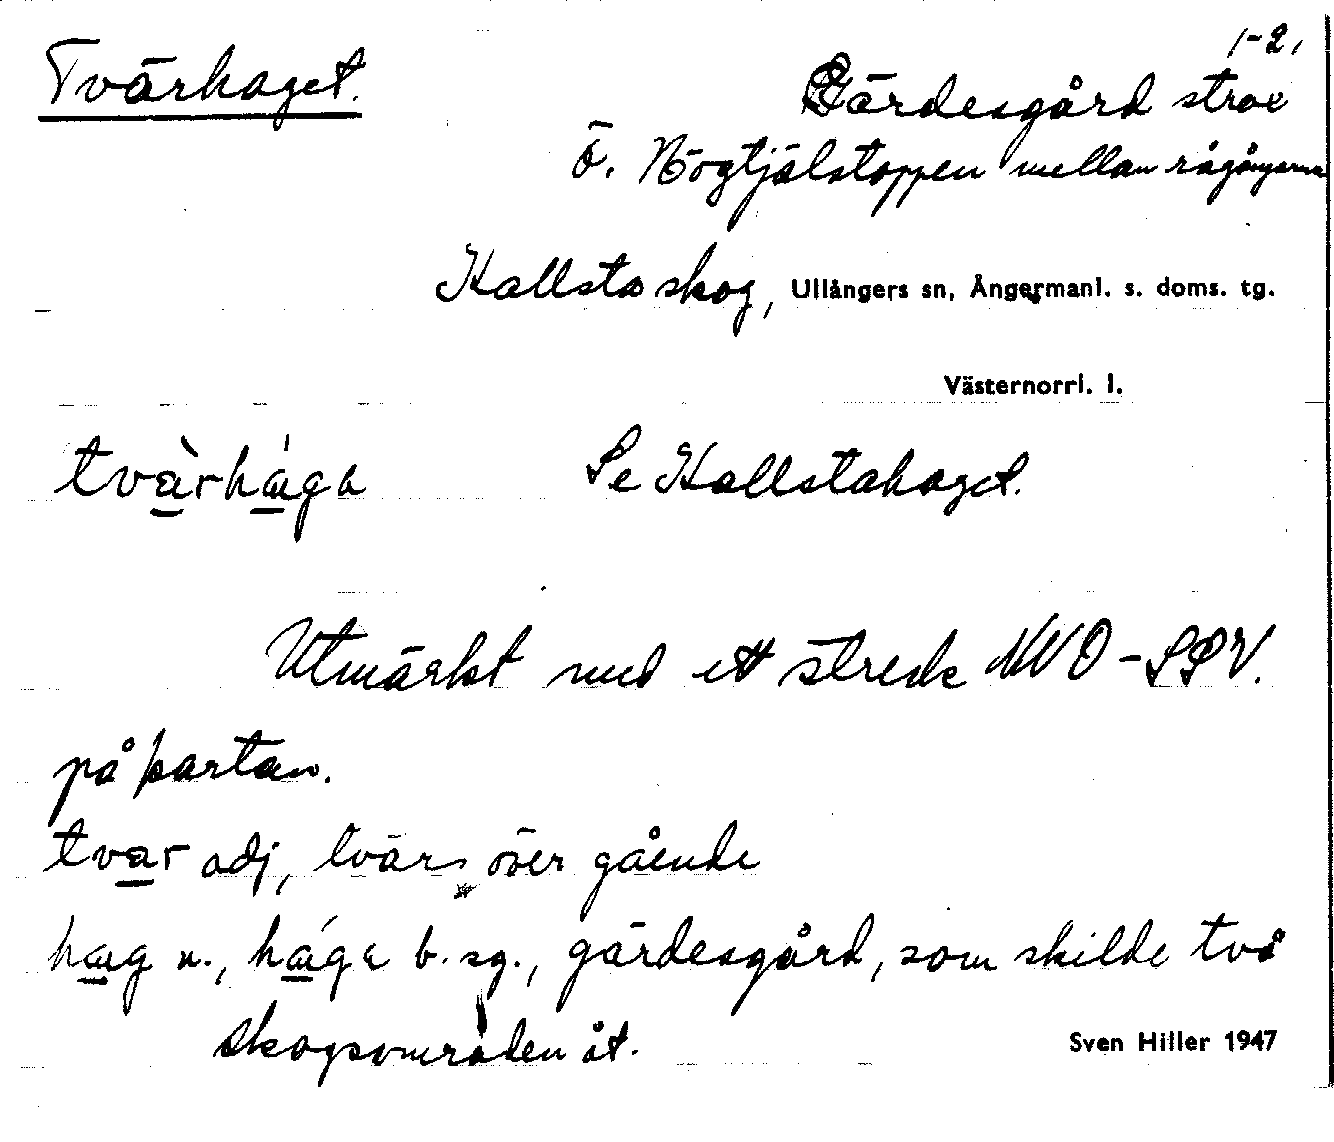 1-2,
Tvärhaget.
Gärdesgård strax
ö. Högtjälstoppen mellan rågångarna
Kallsta skog, Ullångers sn, Ångermanl. s. doms. tg.
Västernorrl. l.
tvàrhága
Se Kallstahaget.
Utmärkt med ett streck NVO-SSV.
på kartan.
tvar adj, tvärs över gående
hag n., hága b. sg., gärdesgård, som skilde två
skogsområden åt.
Sven Hiller 1947